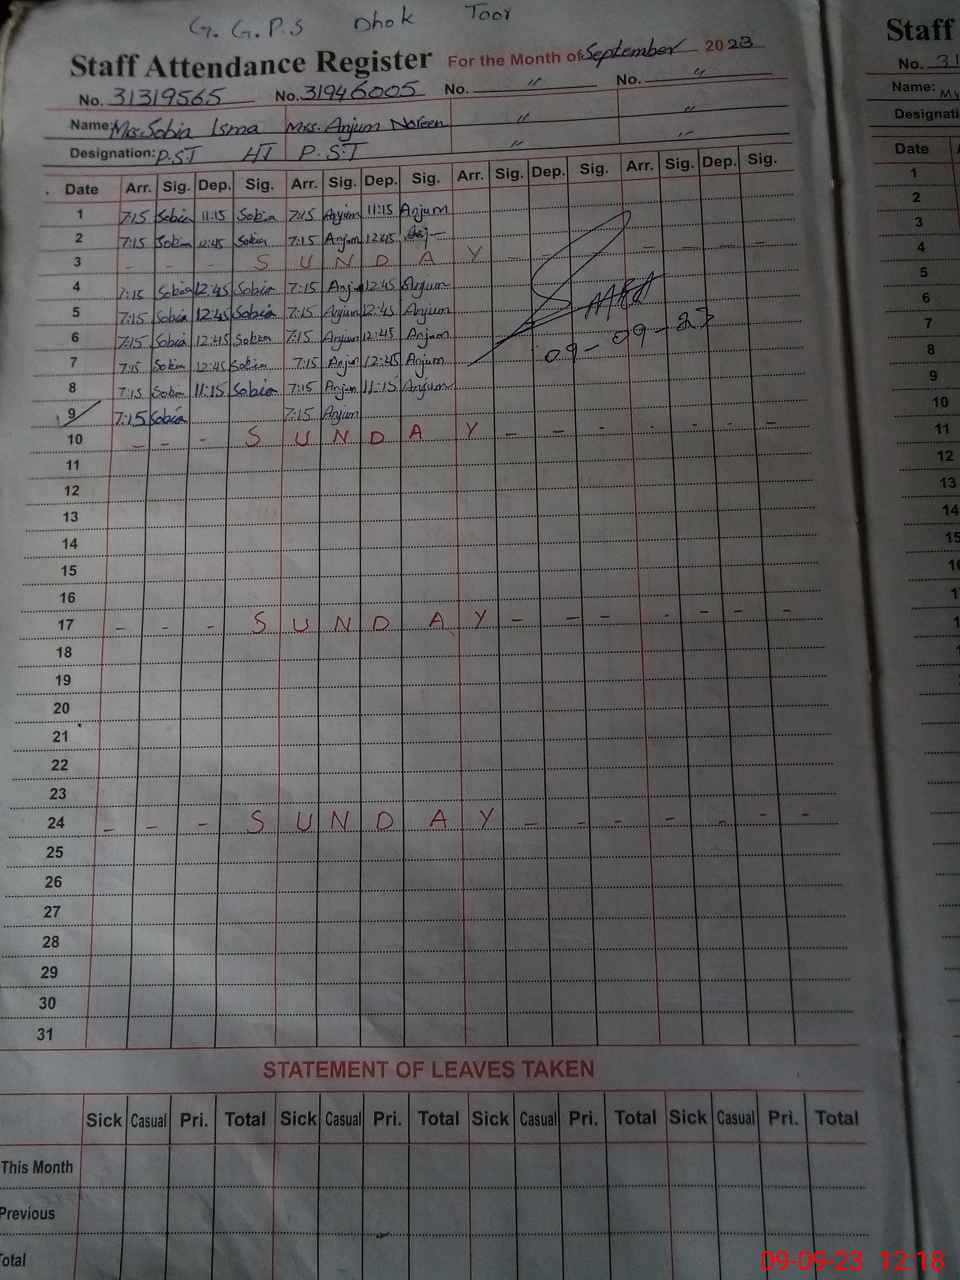 G. G.P.S Dhok Toor
Staff Attendance Register For the Month of September 2023
No. 31319565 No. 31946005 No. " No. "
Name: Mrs. Sobia Isma Mrs. Anjum Noreen " "
Designation: P.ST HT P.S.T " "
Date Arr. Sig. Dep. Sig. Arr. Sig. Dep. Sig. Arr. Sig. Dep. Sig. Arr. Sig. Dep. Sig.
1 7:15 Sobia 11:15 Sobia 7:15 Anjum 11:15 Anjum
2 7:15 Sobia 12:45 Sobia 7:15 Anjum 12:45
3 - - - S U N D A Y - - - - - - -
4 7:15 Sobia 12:45 Sobia 7:15 Anjum 12:45 Anjum
5 7:15 Sobia 12:45 Sobia 7:15 Anjum 12:45 Anjum
6 7:15 Sobia 12:45 Sobia 7:15 Anjum 12:45 Anjum
09-09-23
7 7:15 Sobia 12:45 Sobia 7:15 Anjum 12:45 Anjum
8 7:15 Sobia 11:15 Sobia 7:15 Anjum 11:15 Anjum
9 7:15 Sobia 7:15 Anjum
10 - - - S U N D A Y - - - - - - -
11
12
13
14
15
16
17 - - - S U N D A Y - - - - - - -
18
19
20
21
22
23
24 - - - S U N D A Y - - - - - - -
25
26
27
28
29
30
31
STATEMENT OF LEAVES TAKEN
Sick Casual Pri. Total Sick Casual Pri. Total Sick Casual Pri. Total Sick Casual Pri. Total
This Month
Previous
Total
Staff
No. 31
Name: My
Designati
Date A
1
2
3
4
5
6
7
8
9
10
11
12
13
14
15
09-09-23 12:18